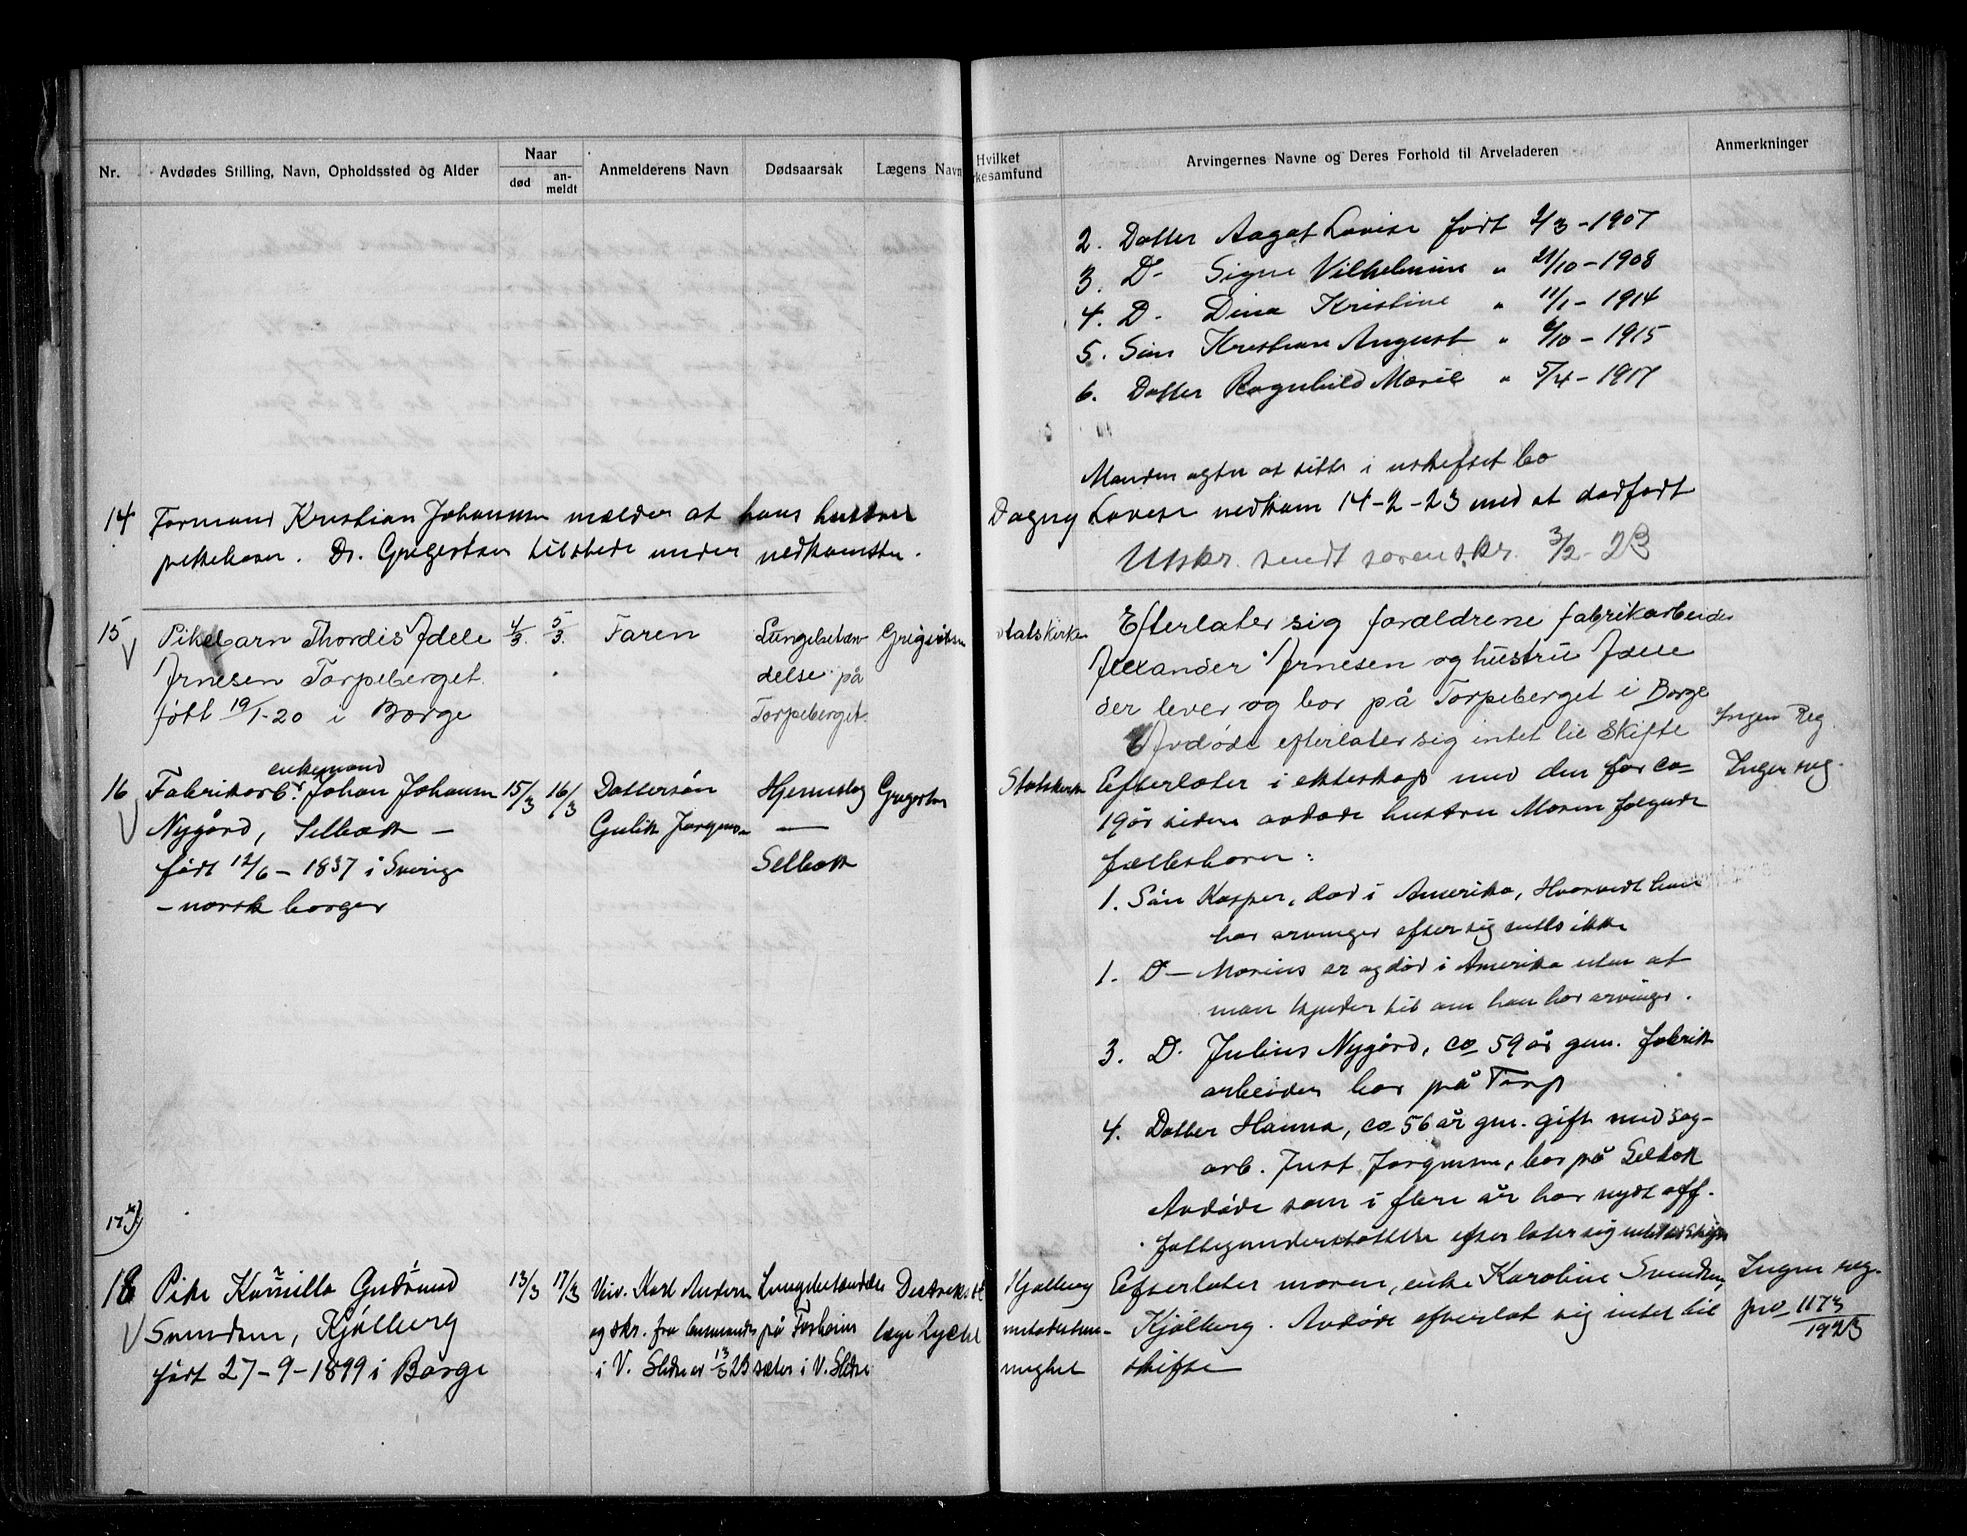 Nr.
Avdødes Stilling, Navn, Opholdssted og Alder
Naar
død
an-
meldt
Anmelderens Navn
Dødsaarsak
Lægens Navn
Hvilket
rkesamfund
Arvingernes Navne og Deres Forhold til Arveladeren
Anmerkninger
2. Datter Aagot Lovise født 2/3 - 1907
3. D- Signe Vilhelmine " 21/10 - 1908
4. D. Dina Kristine " 11/1 - 1914
5. Sön Kristian August " 6/10 - 1915
6. Datter Ragnhild Marie " 5/4 - 1917
Manden agter at sitte i uskiftet bo
14 Formand Kristian Johansen melder at hans hustru Dagny Lovise nedkom 14-2-23 med et dødfødt
pikebarn. Dr. Gregertsen tilstede under nedkomsten.
Utskr. sendt sorenskr. 3/2-23
15
Pikebarn Thordis Adele
Arnesen Torpeberget.
født 19/1-20 i Borge
4/3.
5/3.
Faren
Lungebetæn
delse på
Torpeberget.
Grigertsen
statskirken
Efterlater sig forældrene fabrikarbeider
Alexander Arnesen og hustru Adele
der lever og bor på Torpeberget i Borge
Avdøde efterlater sig intet til Skifte
Ingen Reg.
16
enkemand
Fabrikarb. Johan Johansen
Nygård, Selbak -
født 12/6 - 1837 i Sverige
- norsk borger
15/3
16/3
Dattersön
Gulik Jørgensen
Hjerneslag
—
Selbak
Gregertsen
Statskirken
Efterlater i ekteskap med den for ca
19 år siden avdøde hustru Maren følgende
fællesbarn:
1. Sön Kasper, död i Amerika, Hvorvidt han
har arvinger efter sig vites ikke
1. D- Marius er og död i Amerika uten at
man kjender til om han har arvinger.
3. D. Julius Nygård, ca 59 år gm. fabrik
arbeider bor på Torp
4. Datter Hanna, ca 56 år gm. gift med sag-
arb. Just Jørgensen, bor på Selbak
Avdøde som i flere år har nydt off.
fattigunderstøttelse efterlater sig intet til Skifte
Ingen reg.
17
18
Pike Kamilla Gudrund
Svendsen, Kjølberg
født 27-9-1899 i Borge
13/3
17/3
Univ. Karl Andersen
og skr. fra lensmanden
i V. Slidre av 13/3 23
Lungebetændelse
på Forheim
sæter i V. Slidre
Distrikts
læge Lychl
Kjølberg
metodistme-
nighet
Efterlater moren, enke Karoline Svendsen,
Kjølberg. Avdøde efterlot sig intet til
skifte
Ingen reg.
pro 1173/1923